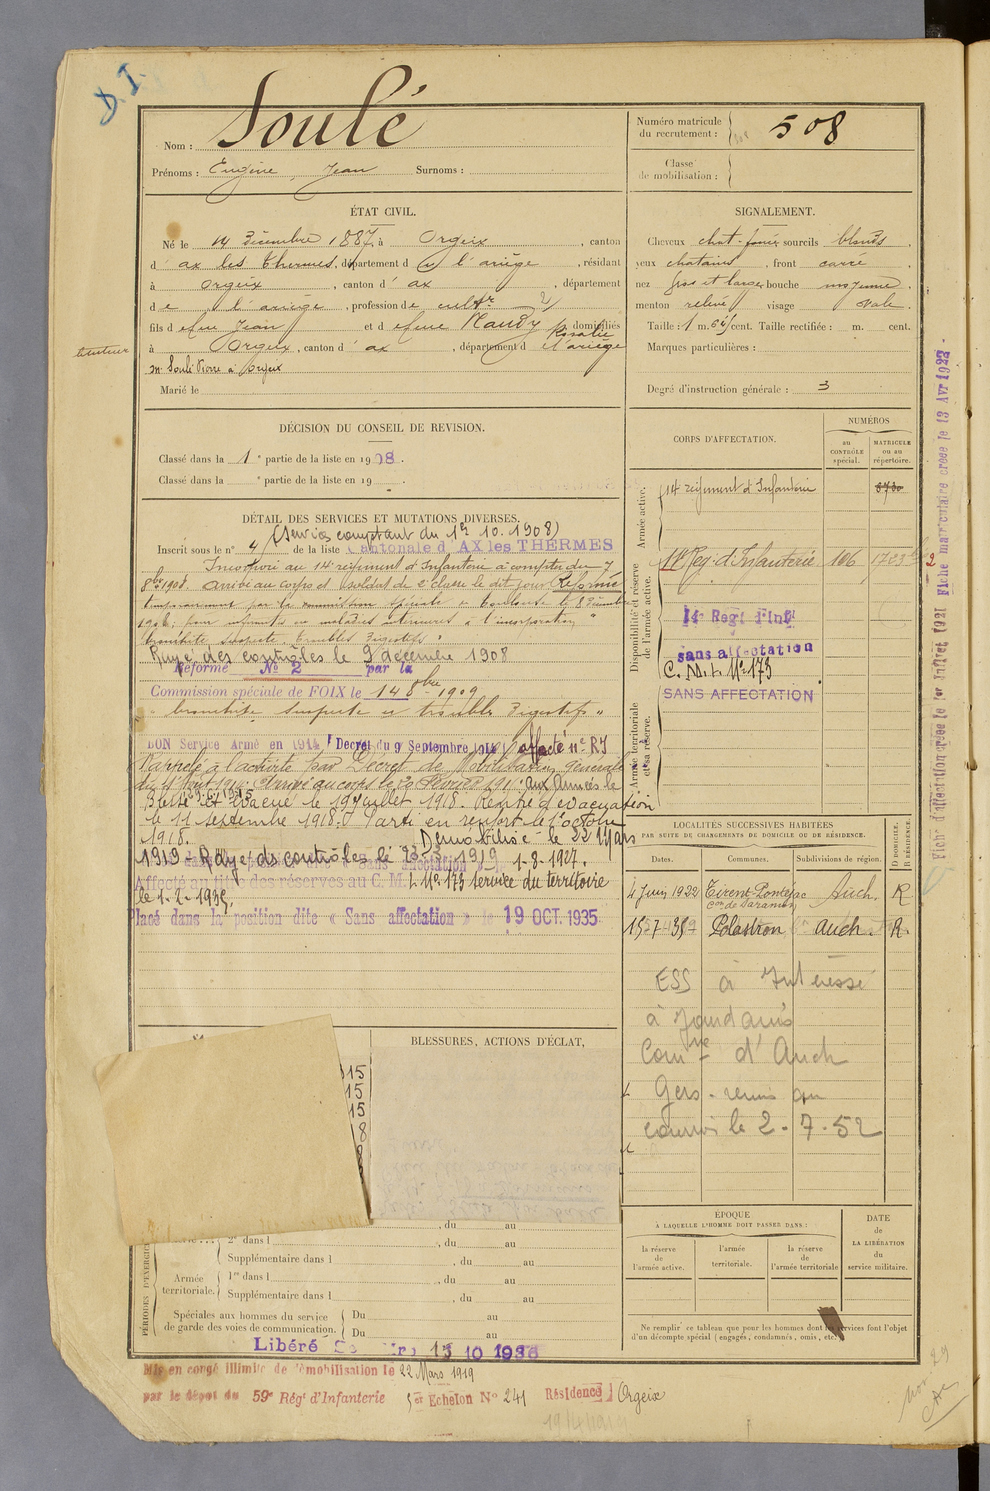 D. I.
Nom : Soulé
Prénoms : Eugène, Jean Surnoms :
Numéro matricule du recrutement : 508
Classe de mobilisation :
ÉTAT CIVIL.
Né le 14 Décembre 1887, à Orgeix, canton
d'ax les Thermes, département d l'ariège, résidant
à Orgeix, canton d'ax, département
de l'ariège, profession de cultr
fils d efeu Jean et d efeue Naudy Rosalie, domiciliés
à Orgeix, canton d'ax, département d el'ariège
tuteur
M. Soulé Pierre à Orgeix
Marié le
SIGNALEMENT.
Cheveux chat-foncé sourcils blonds,
yeux chatains, front carré,
nez gros et large bouche moyenne,
menton relevé visage ovale.
Taille : 1 m. 61 cent. Taille rectifiée : m. cent.
Marques particulières :
Degré d'instruction générale : 3
DÉCISION DU CONSEIL DE REVISION.
Classé dans la 1e partie de la liste en 1908.
Classé dans la e partie de la liste en 19 .
CORPS D'AFFECTATION.
NUMÉROS
au CONTRÔLE spécial.
MATRICULE ou au répertoire.
Armée active.
14e régiment d'Infanterie
Disponibilité et réserve de l'armée active.
11e Reg. d'Infanterie 106
14e Regt d'Infie
sans affectation
C. M. I. N° 173
SANS AFFECTATION
Armée territoriale et sa réserve.
DÉTAIL DES SERVICES ET MUTATIONS DIVERSES.
(Services comptant du 1er 10.1908)
Inscrit sous le n° 4 de la liste Cantonale d'AX les THERMES
Incorporé au 14e régiment d'Infanterie à compter du 7
8bre 1908. Arrivé au corps et soldat de 2e classe le dit jour. Réformé
temporairement par la commission spéciale de Toulouse le 8 Décembre
1908, pour infirmités ou maladies antérieures à l'incorporation "
bronchite suspecte. troubles digestifs "
Rayé des contrôles le 9 décembre 1908
Réformé N° 2 par la
Commission spéciale de FOIX le 14 8bre 1909
" bronchite suspecte et troubles digestifs "
BON Service Armé en 1914 (Decret du 9 Septembre 1914) affecté 11e RI
Rappelé à l'activité par Décret de Mobilisation générale
du 1er Aout 1914. Arrivé au corps le 20 Février 191 aux armées le
23-6-1915
Blessé et Evacué le 19 juillet 1918. Rentré d'évacuation
le 11 septembre 1918. Parti en renfort le octobre
1918. Démobilisé le 22 Mars
1919 - Rayé des contrôles le 23-3-1919 1-8-1927.
Affecté au titre des réserves au C. M. I. N° 173 service du territoire
le 1-2-1935.
Placé dans la position dite « Sans affectation » le 19 OCT. 1935
LOCALITÉS SUCCESSIVES HABITÉES
PAR SUITE DE CHANGEMENTS DE DOMICILE OU DE RÉSIDENCE.
Dates. Communes. Subdivisions de région. D DOMICILE. R RÉSIDENCE.
4 Juin 1932 Tirent-Pontéjac Auch. R
con de Saramon
15-7-35 Polastron Auch. R.
ESS à Intéressé
à
Comne d'Auch
Gers - remis au
courrier le 2-7-52
BLESSURES, ACTIONS D'ÉCLAT,
15
15
15
8
8
ÉPOQUE
À LAQUELLE L'HOMME DOIT PASSER DANS :
la réserve de l'armée active.
l'armée territoriale.
la réserve de l'armée territoriale
DATE DE LA LIBÉRATION du service militaire.
Ne remplir ce tableau que pour les hommes dont les services font l'objet
d'un décompte spécial (engagés, condamnés, omis, etc.)
PÉRIODES D'EXERCICES
, du au
2e dans l , du au
Supplémentaire dans l , du au
Armée territoriale.
1re dans l , du au
Supplémentaire dans l , du au
Spéciales aux hommes du service de garde des voies de communication.
Du au
Du au
Libéré 15 10 1936
Mis en congé illimité de démobilisation le 22 Mars 1919
par le dépôt du 59e Régt d'Infanterie 5er Echelon N° 241 Résidence Orgeix
Fiche d'affectation créée le 1er Juillet 1921 Fiche matriculaire créée le 13 Avr 1922